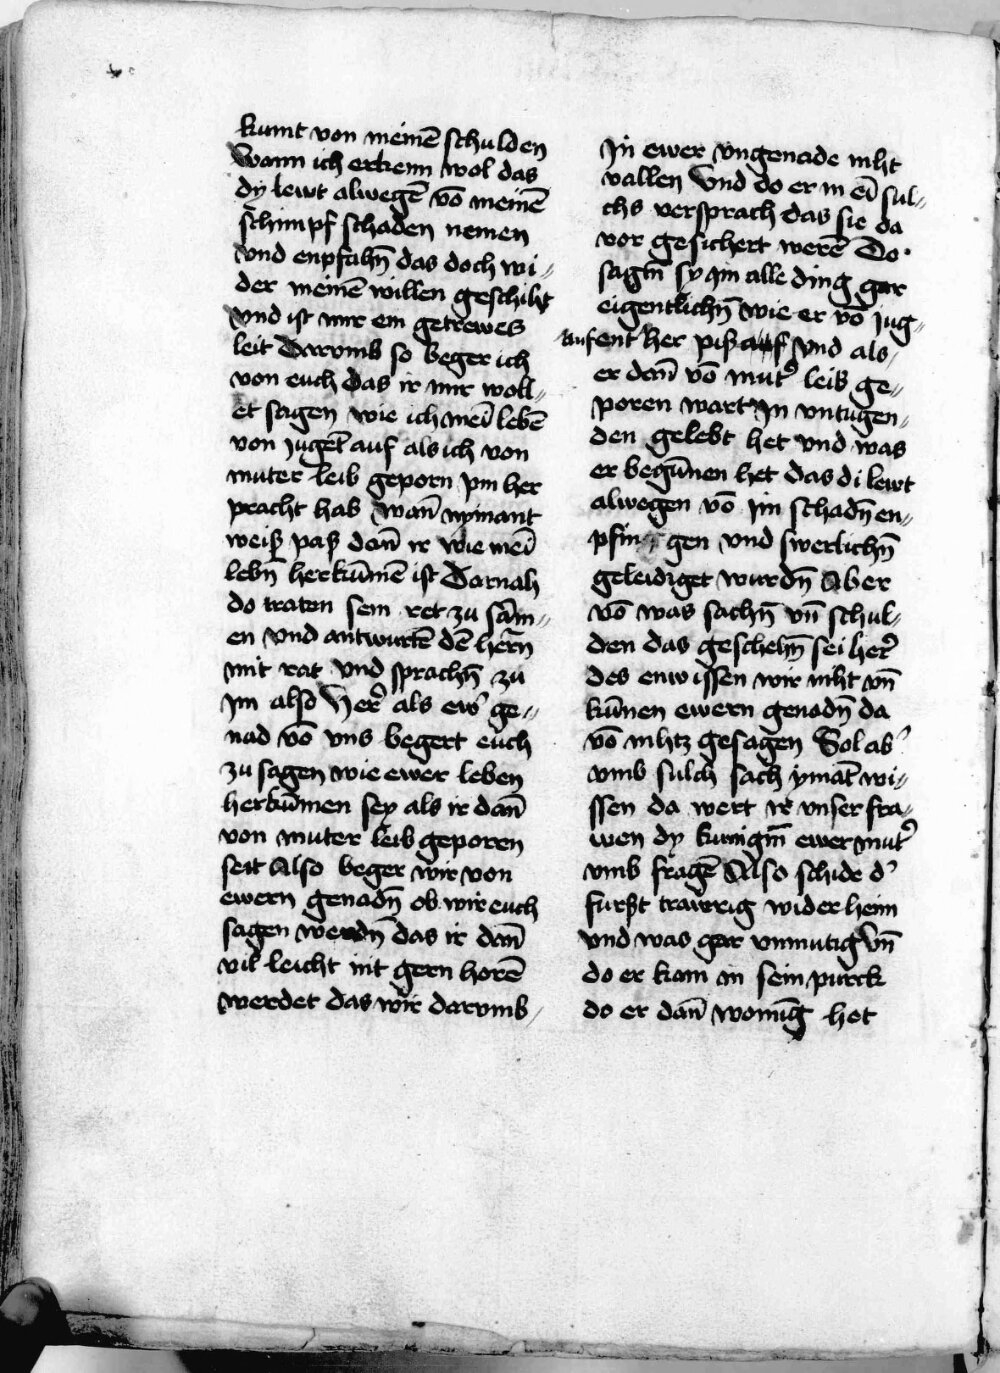 kumt von meinē schulden
Wann ich erkenn wol das
dy lewt alwegē vō meinē
schimpf schaden nemen
vnd enpfahn̄ das doch wi-
der meinē willen geschiht
vnd ist mir ein getrewes
leit Darvmb so beger ich
von euch das ir mir woll-
et sagen wie ich meī lebē
von jugēt auf als ich von
muter leib geporn pin her
pracht hab wan̄ nymant
weiß paß dan̄ ir wie meī
lebn̄ herkūmē ist Darnah
do traten sein ret zu sām-
en vnd antwurtē dē hern̄
mit rat vnd sprachn̄ zu
im also Her̉ als ew̉ ge-
nad vō vns begert euch
zu sagen wie ewer leben
herkūmen sey als ir dan̄
von muter leib geporen
seit Also beger wir von
ewern genadn̄ ob wir euch
sagen werdn̄ das ir dan̄
vil leicht nit gern horē
werdet das wir darvmb-
In ewer vngenade niht
vallen Vnd do er in eī sul-
chs versprach das sie da
vor gesichert werē Do
sagtn̄ sy im alle ding gar
eigentlichn̄ wie er vō jug-
ent her piß auf Vnd als-
er dan̄ vō mut̉ leib ge-
poren wart In vntugen-
den gelebt het vnd was
er begūnen het das di lewt
alwegen vō im schadn̄ en-
pfin gen vnd swerlichn̄
geleidiget wurdn̄ Aber
vō was sachn̄ vn̄ schul-
den das geschehn̄ sei her̉
des enwissen wir niht vn̄
kūnen ewern genadn̄ da
vō nihtz gesagen Sol ab̉
vmb sulch sach ymāt wi-
ssen da wert ir vnser fra-
wen dy kunigin̄ ewer mut̉
vmb fragē Also schide d̉
furßt trawrig wider heim
vnd was gar vnmutig Vn̄
do er kam in sein purck
do er dan̄ wonūg het